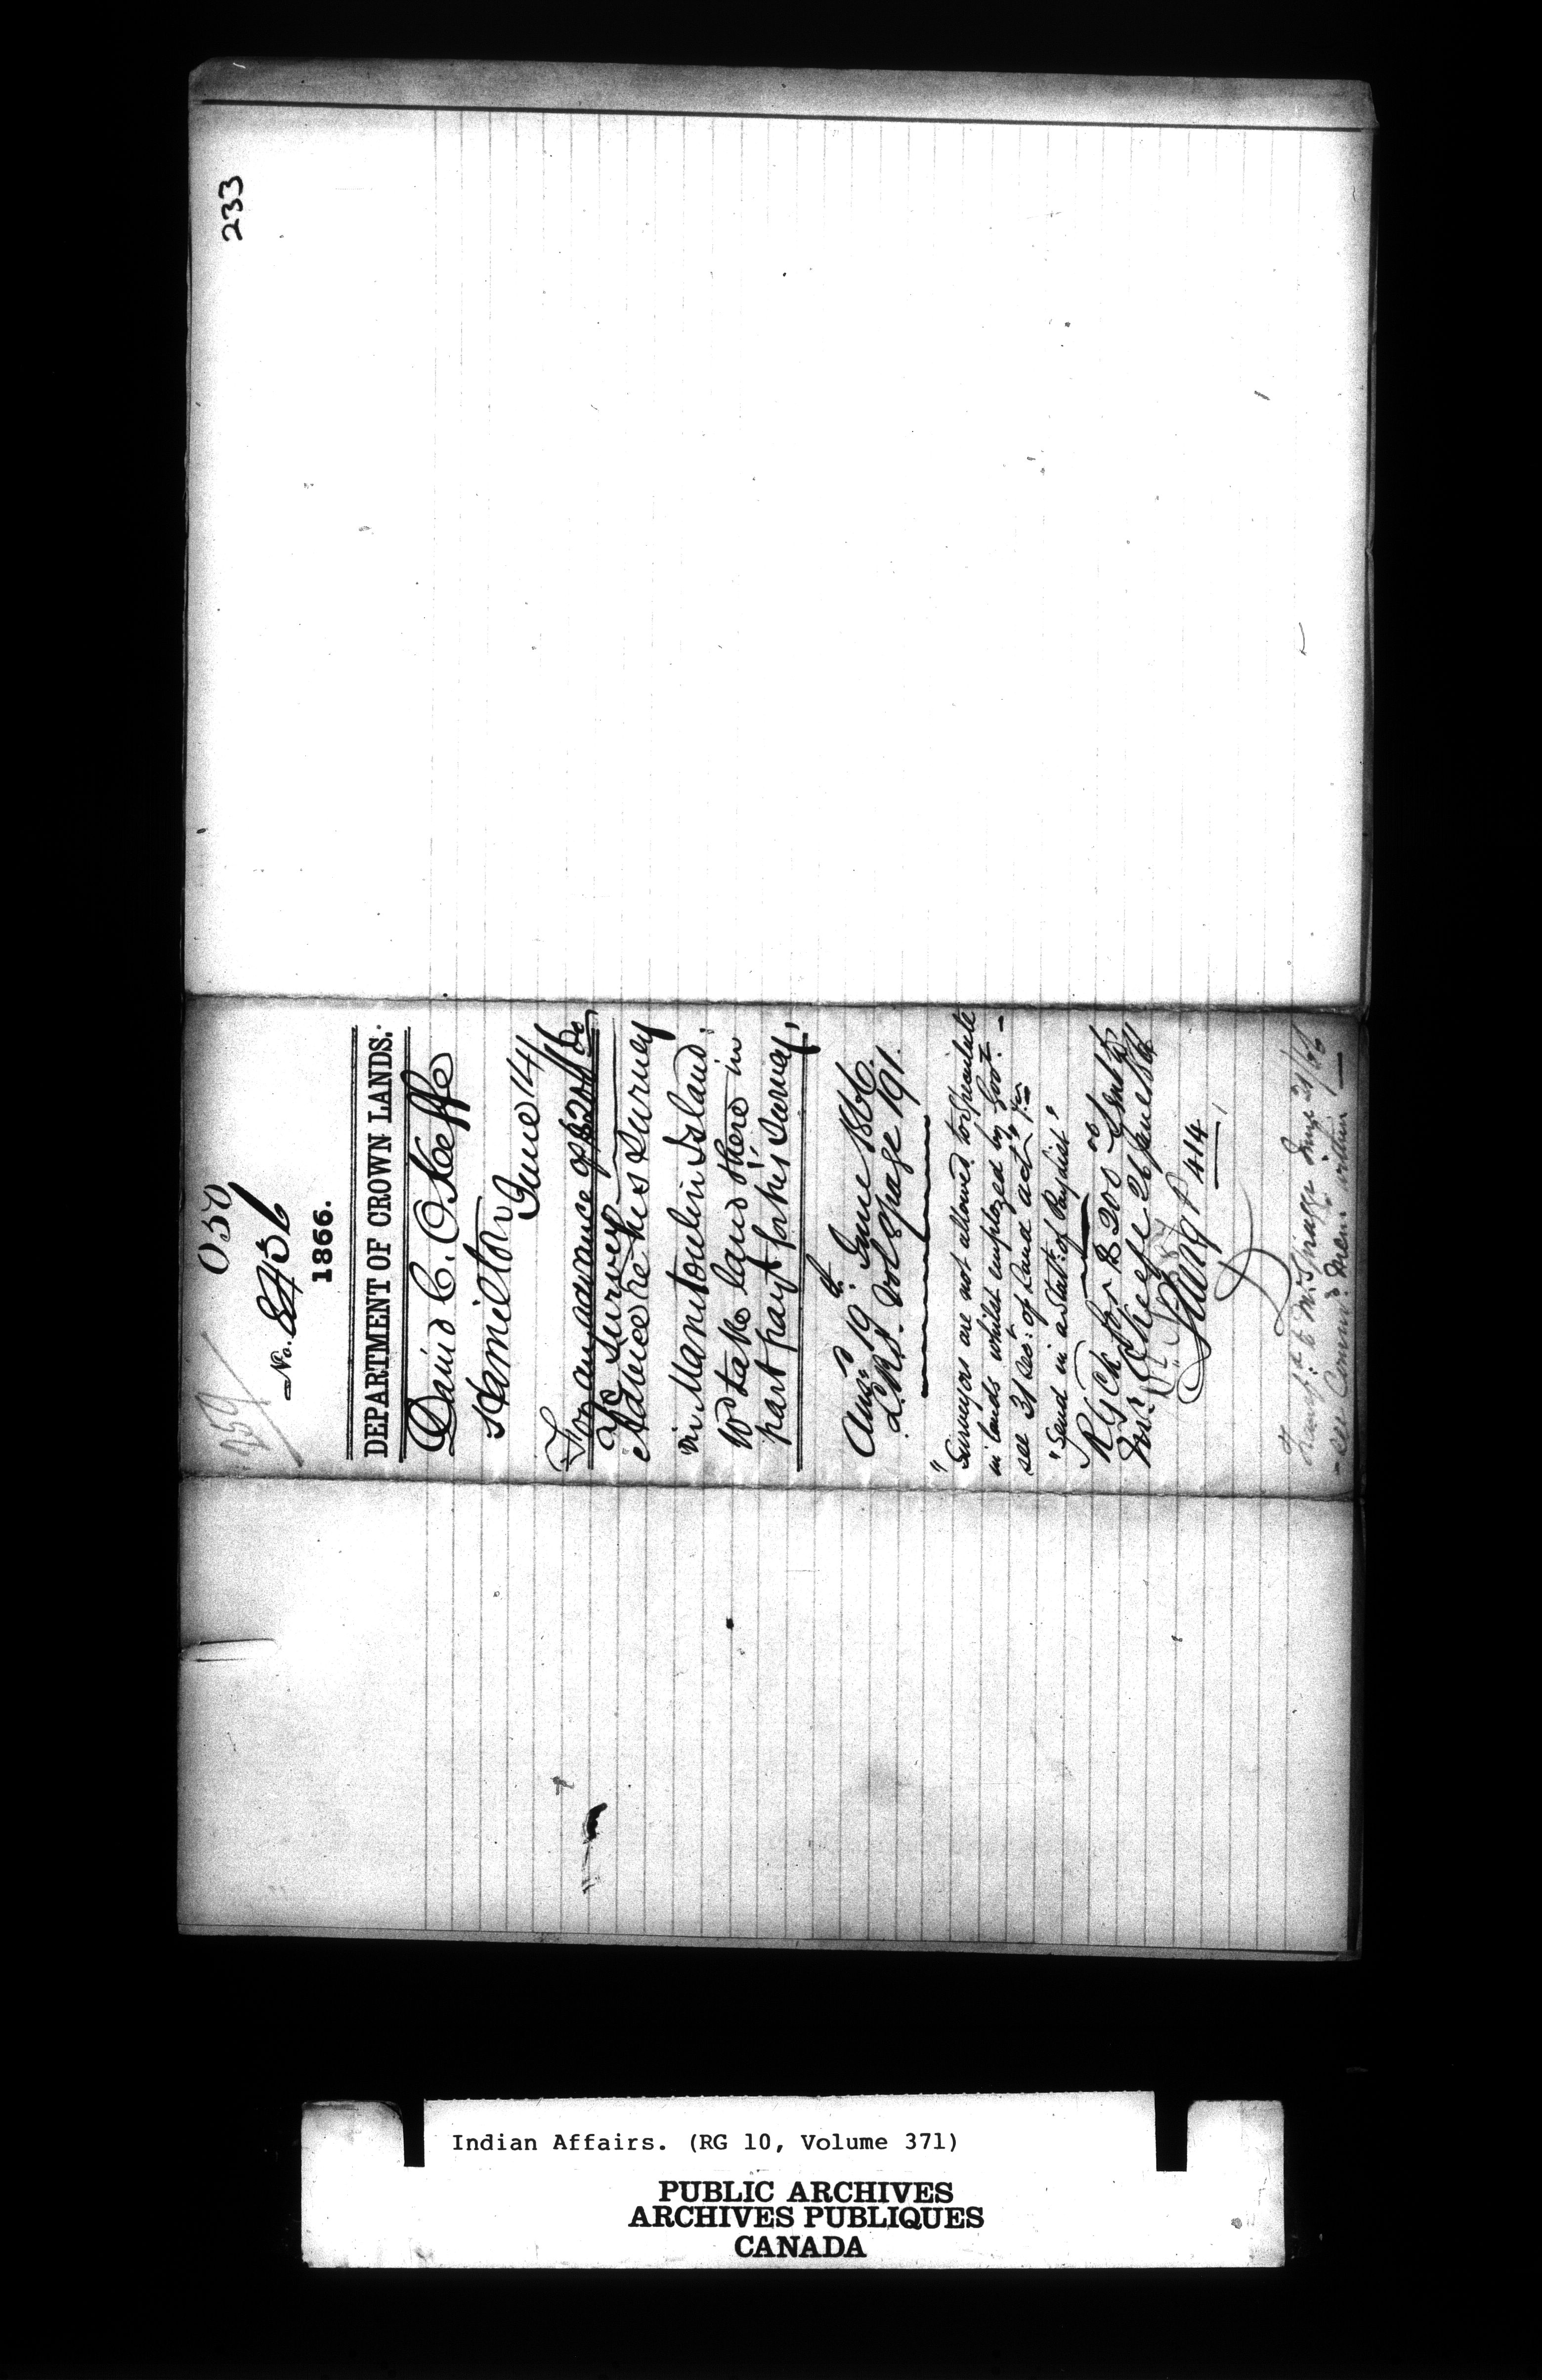 233
259
No. 8456
1866.
DEPARTMENT OF CROWN LANDS.
David C. O'Keeffe
Hamilton
June 14/66
For an advance of $200 do
Survey
Advice re his Survey
in Manitoulin Island.
Wd take land there in
part payt for his Survey.
Ansd 19th June 1866.
L.R.S. Vol 8 page 191.
"Surveyors are not allowed to Speculate
in lands whilst employed by Govt. —
see 31 Sec: of Land act
"Send in a Statt: of Paylist"
Rg Ck for $200 00 Sent to
Mr O'Keefe 26 June 1866
P 414
to Mr Spragge June 21/66
- see Commrs Mem: within —
Indian Affairs. (RG 10, Volume 371)
PUBLIC ARCHIVES
ARCHIVES PUBLIQUES
CANADA